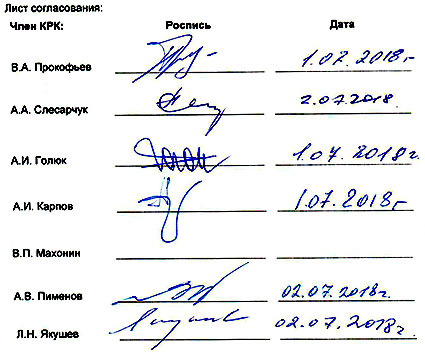 Лист согласования:
Член КРК: Роспись Дата
В.А. Прокофьев 1.07.2018г
А.А. Слесарчук 2.07.2018
А.И. Голюк 1.07.2018г.
А.И. Карпов 1.07.2018г
В.П. Махонин
А.В. Пименов 02.07.2018г.
Л.Н. Якушев 02.07.2018г